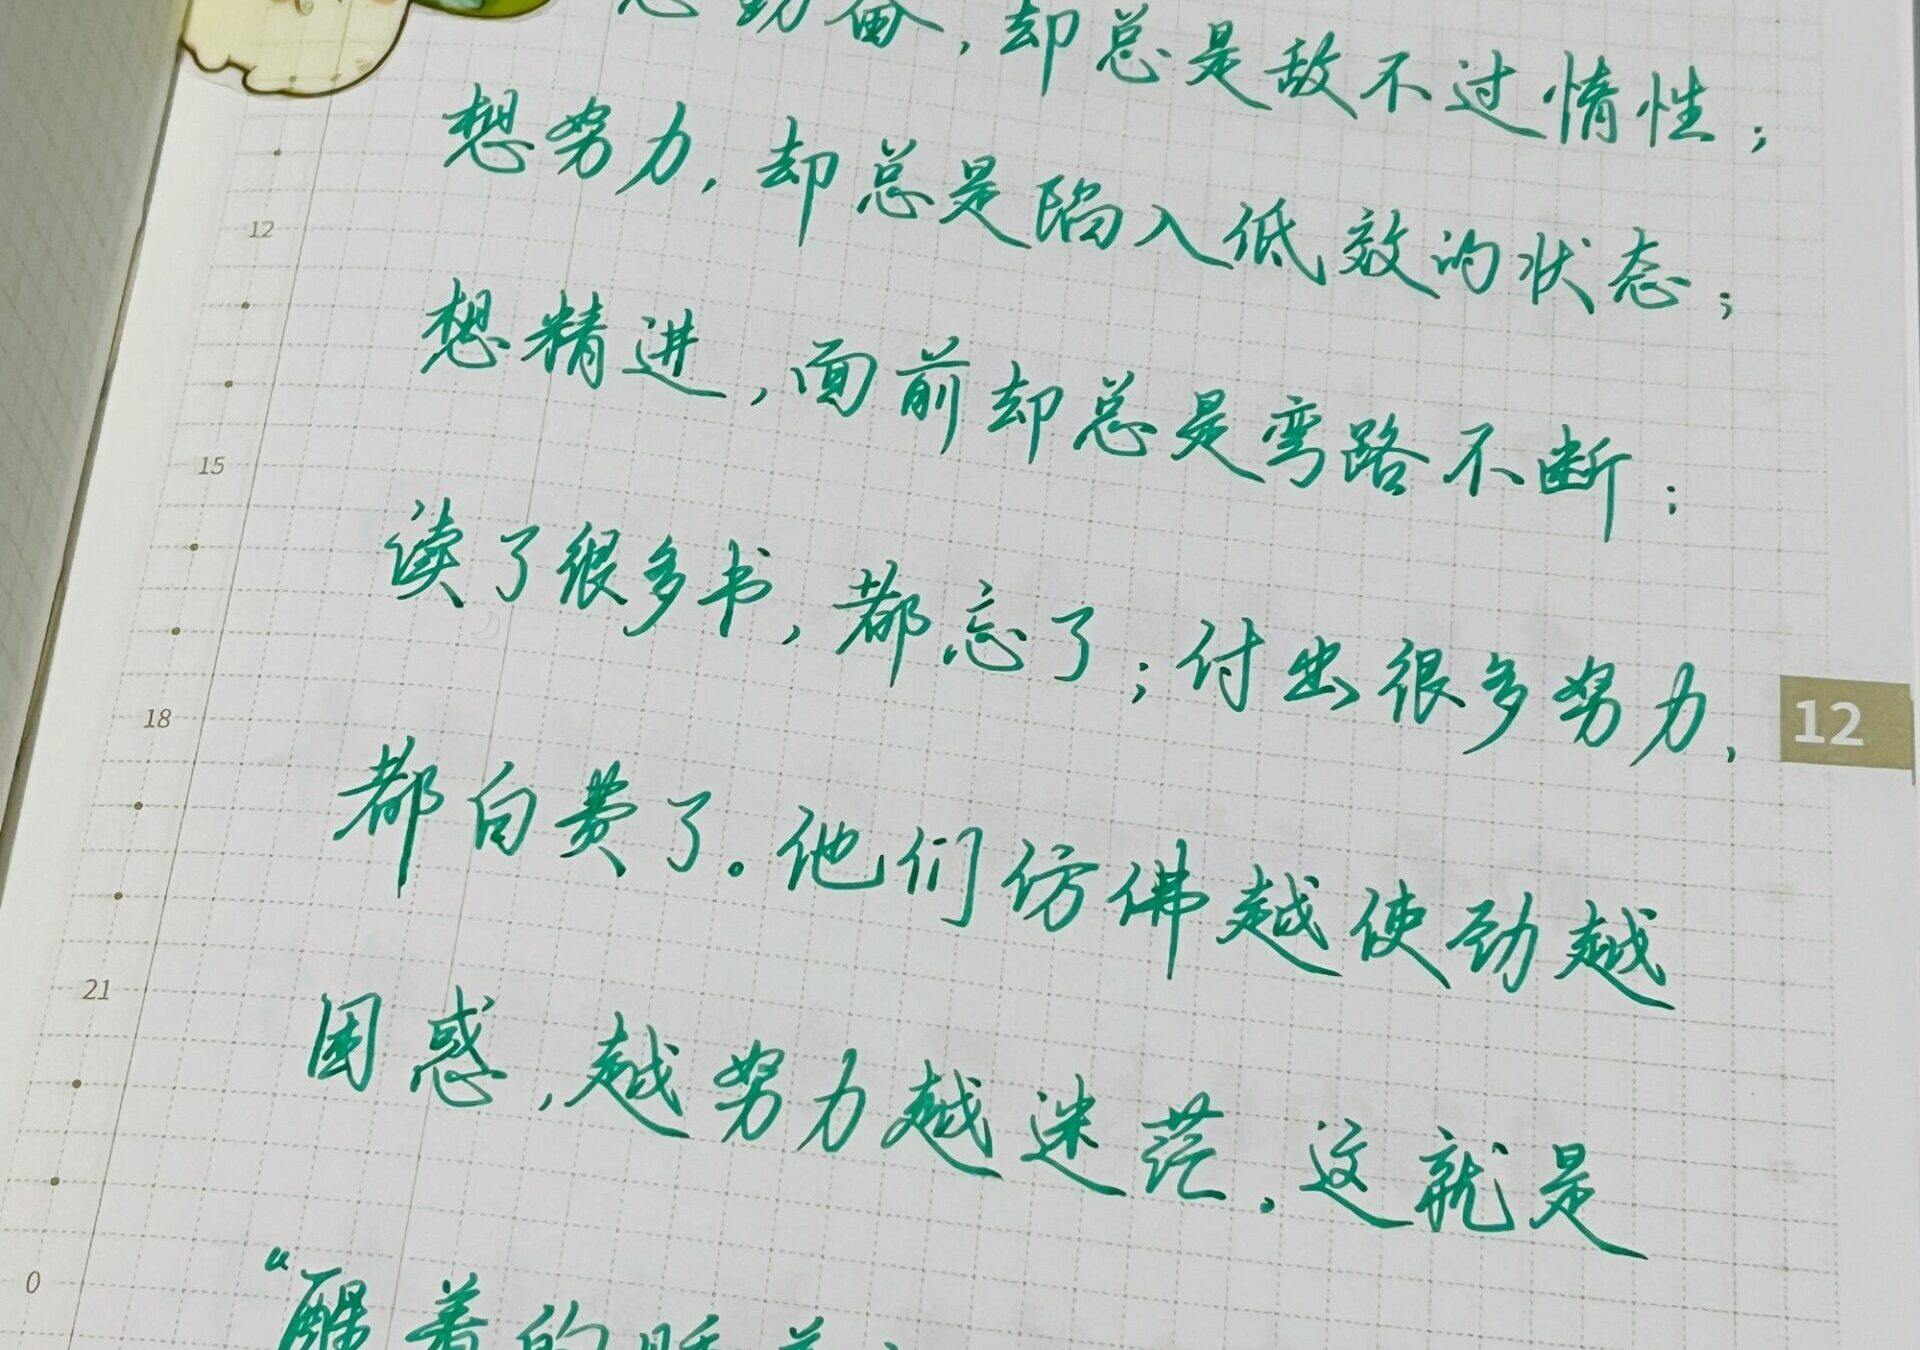 想勤奋，却总是敌不过惰性；
想努力，却总是陷入低效的状态；
12
想精进，面前却总是弯路不断；
15
读了很多书，都忘了；付出很多努力，
12
18
都白费了。他们仿佛越使劲越
21
困惑，越努力越迷茫。这就是
0
“醒着的睡着